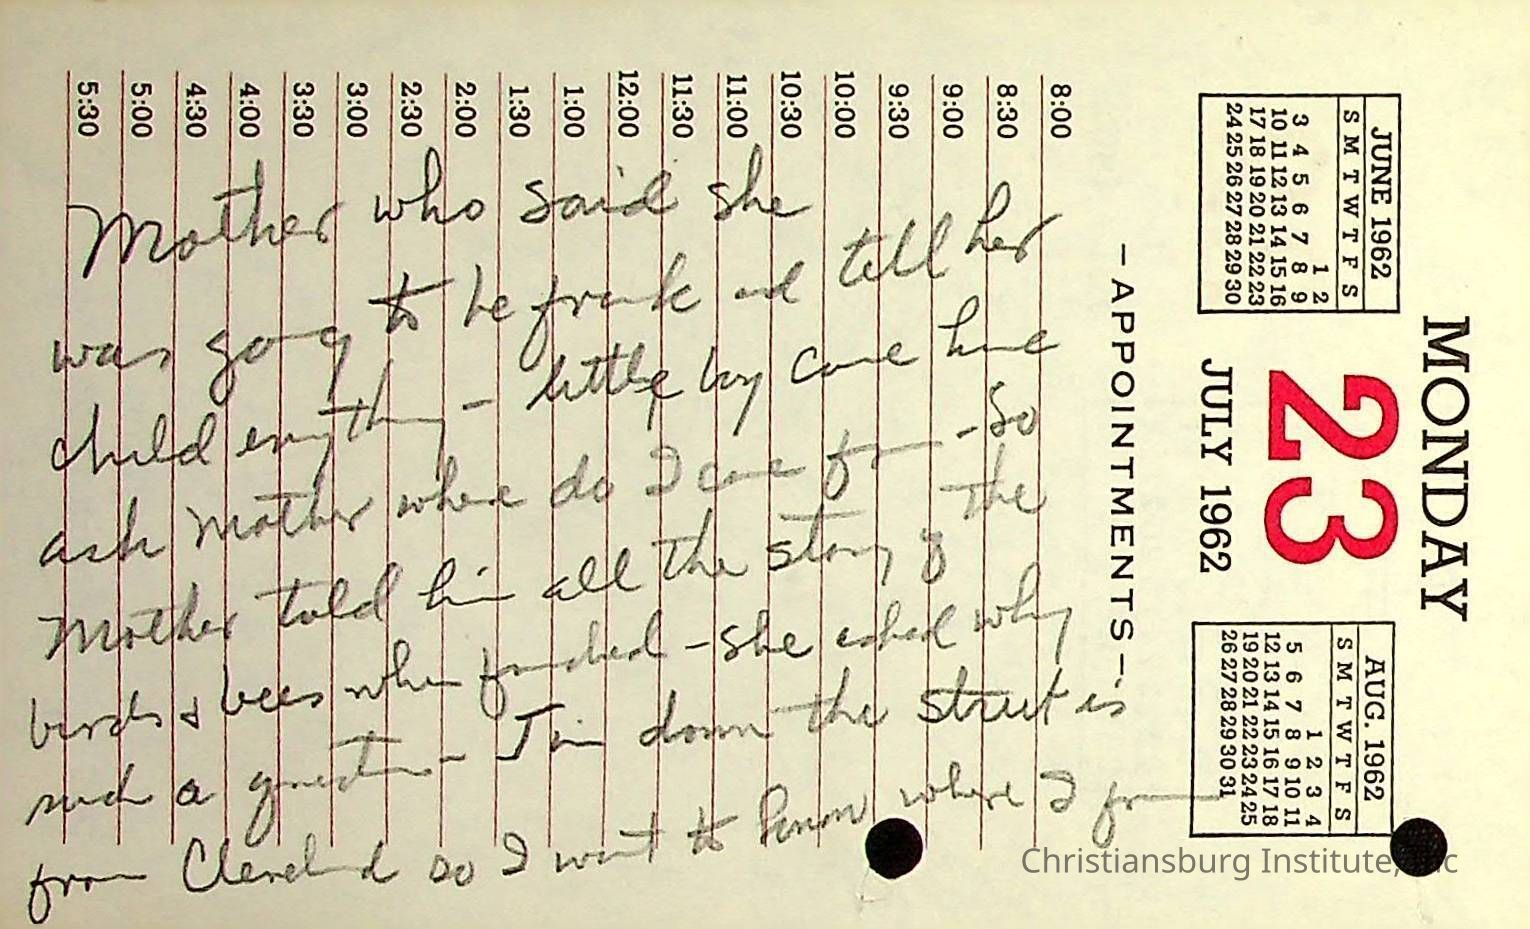 Mother who said she
was going to be frank and tell her
child everything - little boy came home
ask Mother where do I come from - So
Mother told him all the story of the
birds & bees when finished - she asked why
such a question - Jim down the street is
from Cleveland so I want to know where I from
MONDAY
23
JULY 1962
JUNE 1962
S M T W T F S
1 2
3 4 5 6 7 8 9
10 11 12 13 14 15 16
17 18 19 20 21 22 23
24 25 26 27 28 29 30
AUG. 1962
S M T W T F S
1 2 3 4
5 6 7 8 9 10 11
12 13 14 15 16 17 18
19 20 21 22 23 24 25
26 27 28 29 30 31
-APPOINTMENTS-
8:00
8:30
9:00
9:30
10:00
10:30
11:00
11:30
12:00
1:00
1:30
2:00
2:30
3:00
3:30
4:00
4:30
5:00
5:30
Christiansburg Institute, Inc